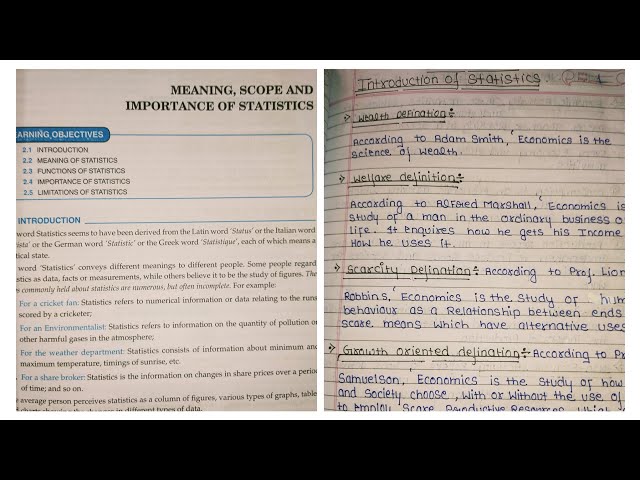 MEANING, SCOPE AND
IMPORTANCE OF STATISTICS
ARNING OBJECTIVES
2.1 INTRODUCTION
2.2 MEANING OF STATISTICS
2.3 FUNCTIONS OF STATISTICS
2.4 IMPORTANCE OF STATISTICS
2.5 LIMITATIONS OF STATISTICS
INTRODUCTION
word Statistics seems to have been derived from the Latin word 'Status' or the Italian word
ista' or the German word 'Statistic' or the Greek word 'Statistique', each of which means a
tical state.
word 'Statistics' conveys different meanings to different people. Some people regard
istics as data, facts or measurements, while others believe it to be the study of figures. The
s commonly held about statistics are numerous, but often incomplete. For example:
For a cricket fan: Statistics refers to numerical information or data relating to the runs
scored by a cricketer;
For an Environmentalist: Statistics refers to information on the quantity of pollution o
other harmful gases in the atmosphere;
For the weather department: Statistics consists of information about minimum and
maximum temperature, timings of sunrise, etc.
For a share broker: Statistics is the information on changes in share prices over a perio
of time; and so on.
average person perceives statistics as a column of figures, various types of graphs, table
d charts showing the changes in different types of data.
Introduction of Statistics.
→ Wealth defination÷
According to Adam Smith, 'Economics is the
science of wealth.
→ Welfare definition÷
According to Alfred Marshall, 'Economics is
study of a man in the ordinary business o
life. It enquires how he gets his Income
How he uses it.
→ Scarcity Defination÷ According to Prof. Lion
Robbins, 'Economics is the study of hum
behaviour as a Relationship between ends
scare means which have alternative uses
→ Growth oriented defination÷ According to Pr
Samuelson, 'Economics is the study of how
and society choose, with or without the use of
to Employ Scare Productive Resources which